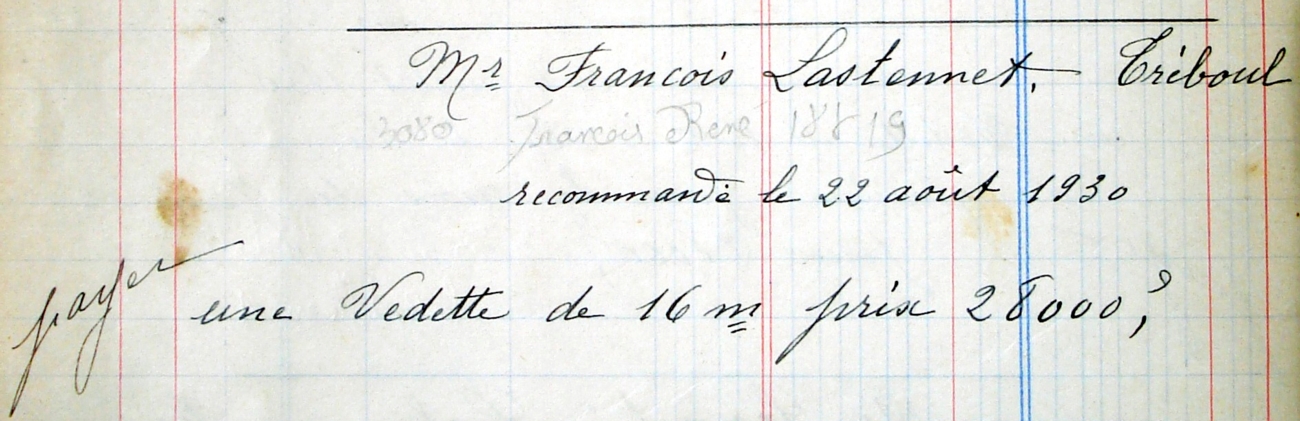 Mr François Lastennet. Tréboul
3080 François René 18819
recommandé le 22 août 1930
payer une Vedette de 16 m prix 28000,